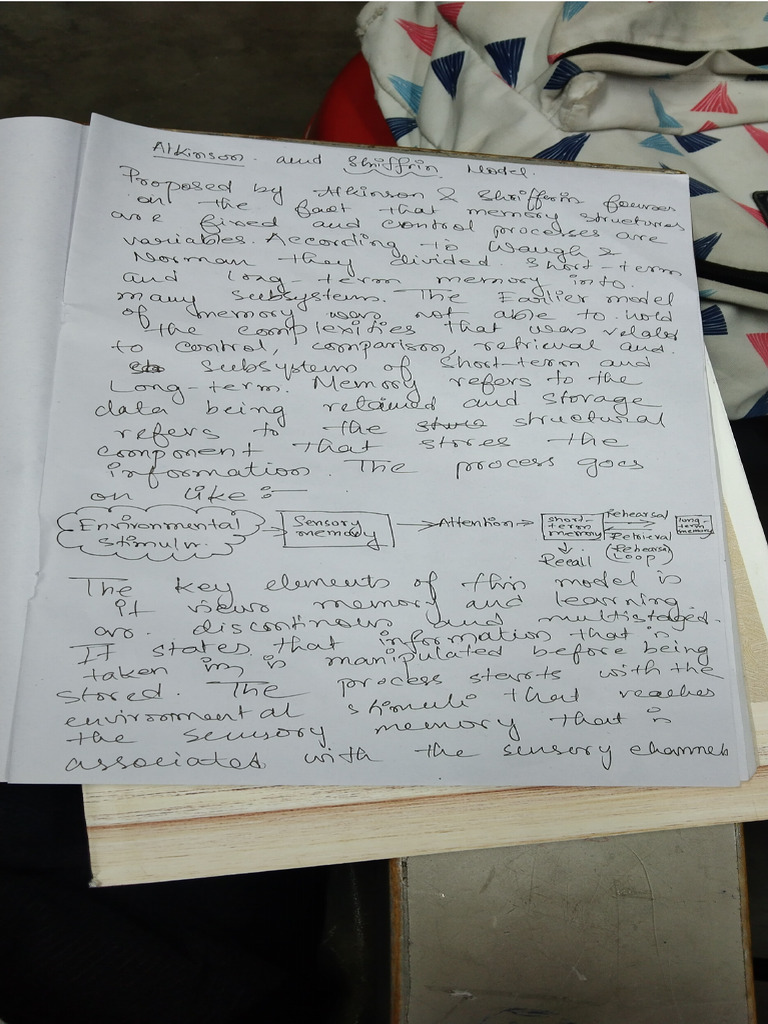 Atkinson and Shriffrin Model.
Proposed by Atkinson & Shrifferin focuses
on the fact that memory structures
are fixed and control processes are
variables. According to Waugh &
Norman they divided short-term
and long-term memory into
many subsystem. The Earlier model
of memory was not able to hold
the complexities that was related
to control, comparison, retrieval and
subsystem of short-term and
Long-term. Memory refers to the
data being retained and storage
refers to the structural
component that stores the
information. The process goes
on like :-
Environmental Stimuli. → Sensory memory → Attention → short-term memory Rehearsal Retrieval (Rehearsal Loop) long-term memory
Recall
The key elements of this model is
it views memory and learning
as discontinous and multistaged.
It states that information that is
taken in is manipulated before being
stored. The process starts with the
environmental stimuli that reaches
the sensory memory that is
associated with the sensory channels